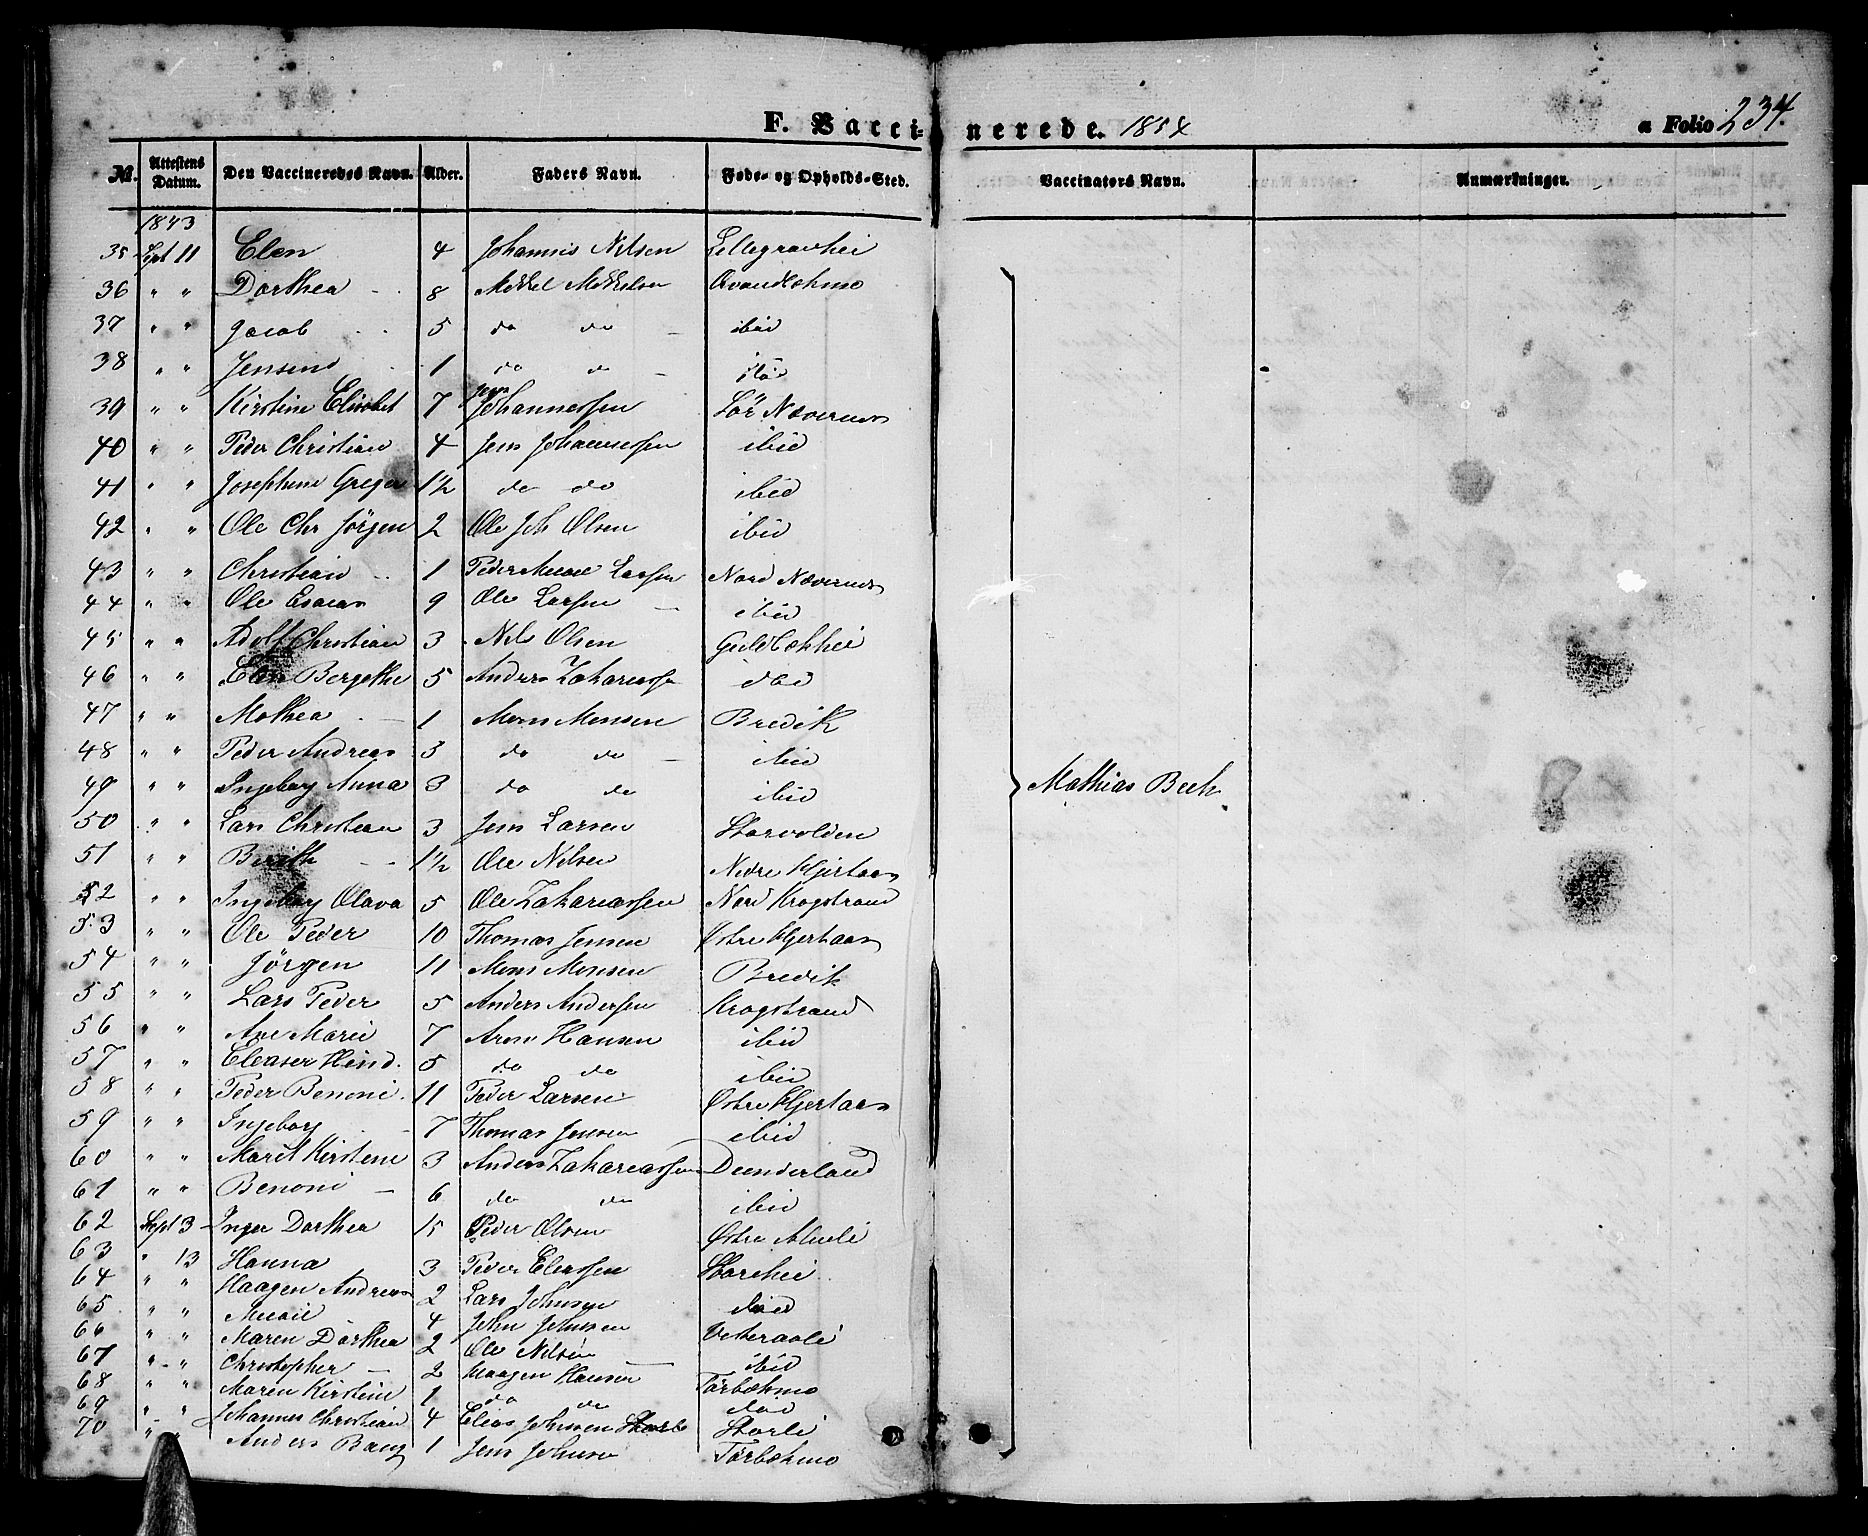 F. Vaccinerede. 1854 a Folio 234.
№. Attestens Datum. Den Vaccineredes Navn. Alder. Faders Navn. Føde- og Opholds-Sted. Vaccinators Navn. Anmærkninger.
1843
35 Sept 11 Elen 4 Johannis Nilsen Lillegravhei
36 " " Dorthea 8 Mikkel Mikkelsen
37 " " Jacob 5 do do ibid
38 " " Jensine 1 do do ibid
39 " " Kirstine Elisabet 7 Jens Johannessen Sør Næverness
40 " " Peder Christian 4 Jens Johannessen ibid
41 " " Josephine Grege 1½ do do ibid
42 " " Ole Chr Jörgen 2 Ole Joh Olsen ibid
43 " " Christian 1 Peder Larsen Nord Næverness
44 " " Ole Esaias 9 Ole Larsen ibid
45 " " Adolf Christian 3 Nils Olsen Guldbækhei
46 " " Elen Bergethe 5 Anders Zakariassen ibid
47 " " Mathea 1 Mons Monsen Bredik
48 " " Peder Andreas 3 do do ibid
49 " " Ingeborg Anna 3 do do ibid
Mathias Bech
50 " " Lars Christian 3 Jens Larsen Storvolden
51 " " Berith 1½ Ole Nilsen Nedre Hjertaas
52 " " Ingeborg Olava 5 Ole Zakariassen Nord Krogstrand
53 " " Ole Peder 10 Thomas Jensen Østre Hjertaas
54 " " Jörgen 11 Mons Monsen Bredik
55 " " Lars Peder 5 Anders Andersen Krogstrand
56 " " Ane Marie 7 Arn Hansen ibid
57 " " Eleaser Hind. 5 do do ibid
58 " " Peder Benoni 11 Peder Larsen Østre Hjertaas
59 " " Ingeborg 7 Thomas Jensen ibid
60 " " Marit Kirstine 3 Anders Zakariassen Dunderland
61 " " Benoni 6 do do ibid
62 Sept 3 Inger Dorthea 15 Peder Olsen Østre
63 " 13 Hanna 3 Peder Eliassen Storhei
64 " " Haagen Andreas 2 Lars Johnsen ibid
65 " " 4 John Johnsen
66 " " Maren Dorthea 2 Ole Nilsen ibid
67 " " Christopher 2 Haagen Hansen Tørbækmo
68 " " Maren Kirstine 1 do do ibid
69 " " Johannes Christian 4 Elias Johnsen Storli
70 " " Anders Bang 1 Jens Johnsen Tørbækmo